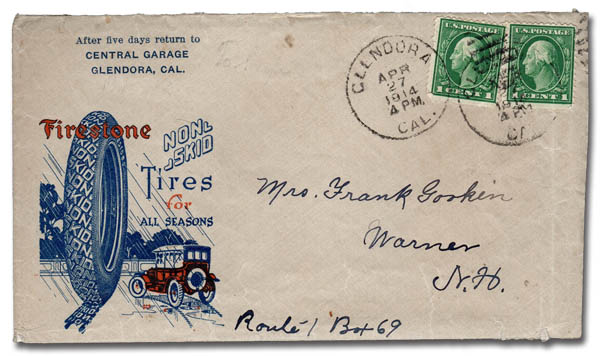 After five days return to
CENTRAL GARAGE
GLENDORA, CAL.
U.S. POSTAGE
1 CENT 1
U.S. POSTAGE
1 CENT 1
GLENDORA
APR
27
1914
4 PM.
CAL.
4 PM.
Firestone
NON
SKID
Tires
for
ALL SEASONS
Mrs. Frank Goskin
Warner
N.H.
Route 1 Box 69